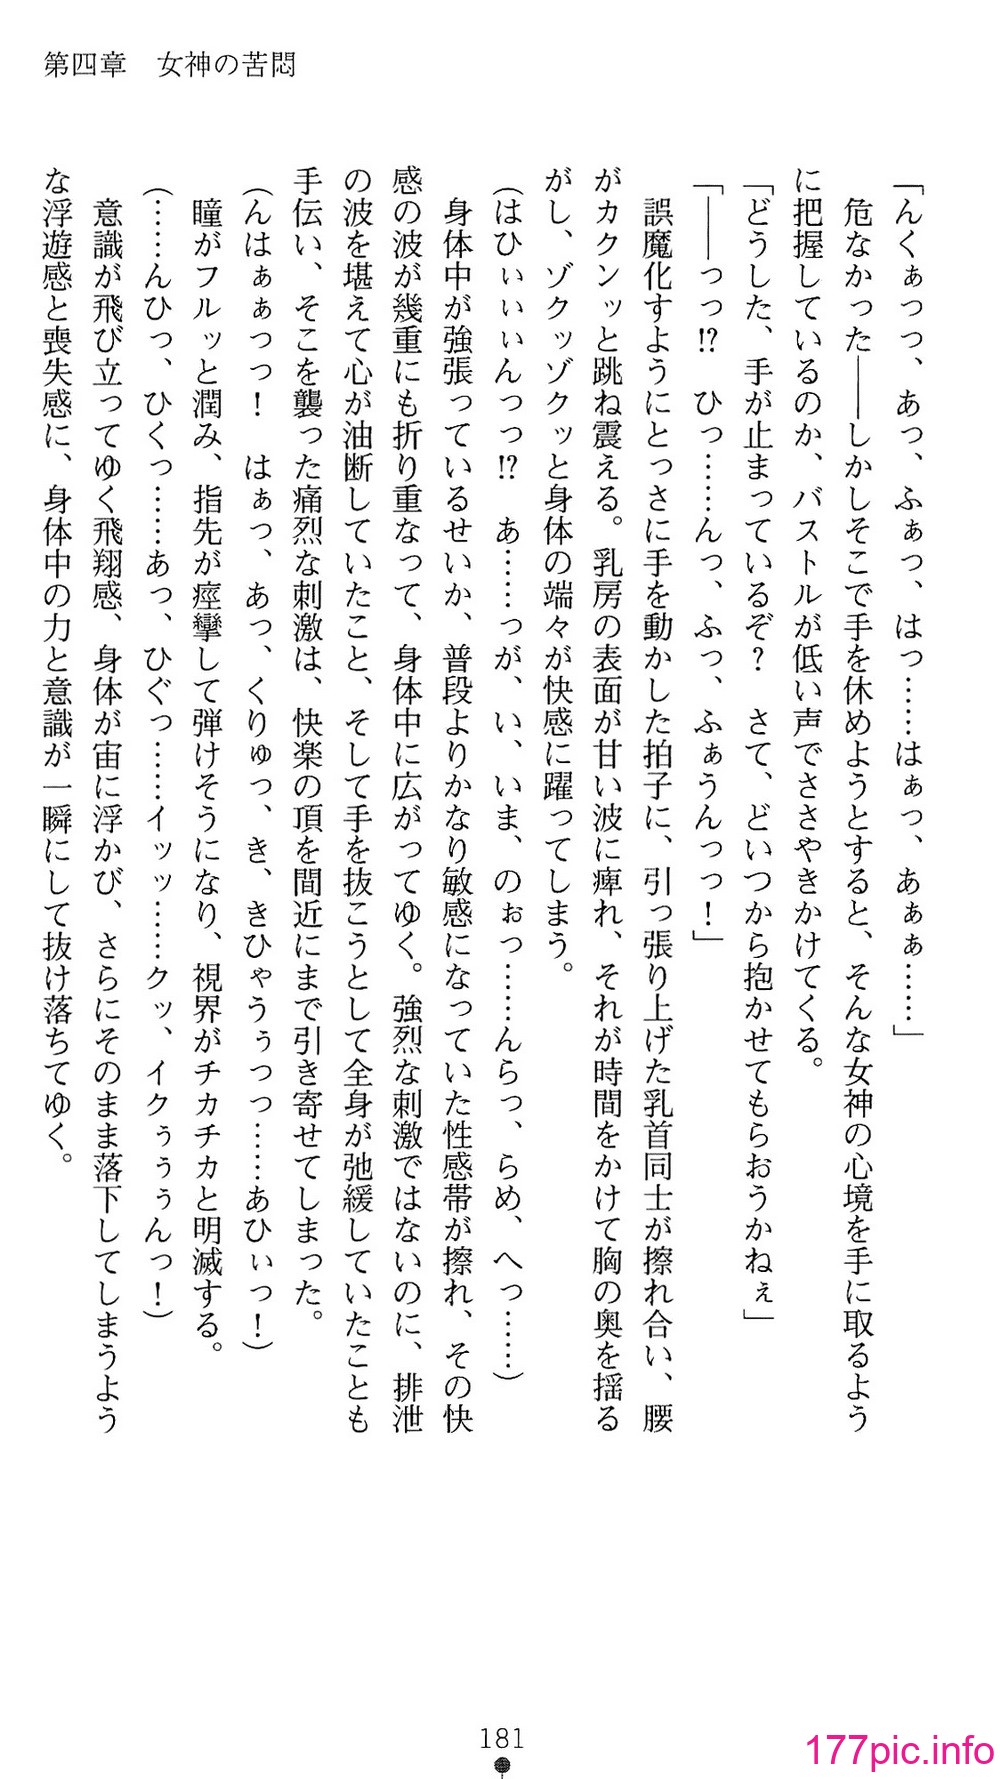 第四章　女神の苦悶
「んくぁっっ、あっ、ふぁっ、はっ……はぁっ、あぁぁ……」
　危なかった――しかしそこで手を休めようとすると、そんな女神の心境を手に取るよう
に把握しているのか、バストルが低い声でささやきかけてくる。
「どうした、手が止まっているぞ？　さて、どいつから抱かせてもらおうかねぇ」
「――っっ!?　ひっ……んっ、ふっ、ふぁうんっっ！」
　誤魔化すようにとっさに手を動かした拍子に、引っ張り上げた乳首同士が擦れ合い、腰
がカクンッと跳ね震える。乳房の表面が甘い波に痺れ、それが時間をかけて胸の奥を揺る
がし、ゾクッゾクッと身体の端々が快感に躍ってしまう。
（はひぃぃぃんっっ!?　あ……っが、い、いま、のぉっ……んらっ、らめ、へっ……）
　身体中が強張っているせいか、普段よりかなり敏感になっていた性感帯が擦れ、その快
感の波が幾重にも折り重なって、身体中に広がってゆく。強烈な刺激ではないのに、排泄
の波を堪えて心が油断していたこと、そして手を抜こうとして全身が弛緩していたことも
手伝い、そこを襲った痛烈な刺激は、快楽の頂を間近にまで引き寄せてしまった。
（んはぁぁっっ！　はぁっ、あっ、くりゅっ、き、きひゃうぅっっ……あひぃっ！）
　瞳がフルッと潤み、指先が痙攣して弾けそうになり、視界がチカチカと明滅する。
（……んひっ、ひくっ……あっ、ひぐっ……イッッ……クッ、イクぅぅぅんっ！）
　意識が飛び立ってゆく飛翔感、身体が宙に浮かび、さらにそのまま落下してしまうよう
な浮遊感と喪失感に、身体中の力と意識が一瞬にして抜け落ちてゆく。
181
177pic.info